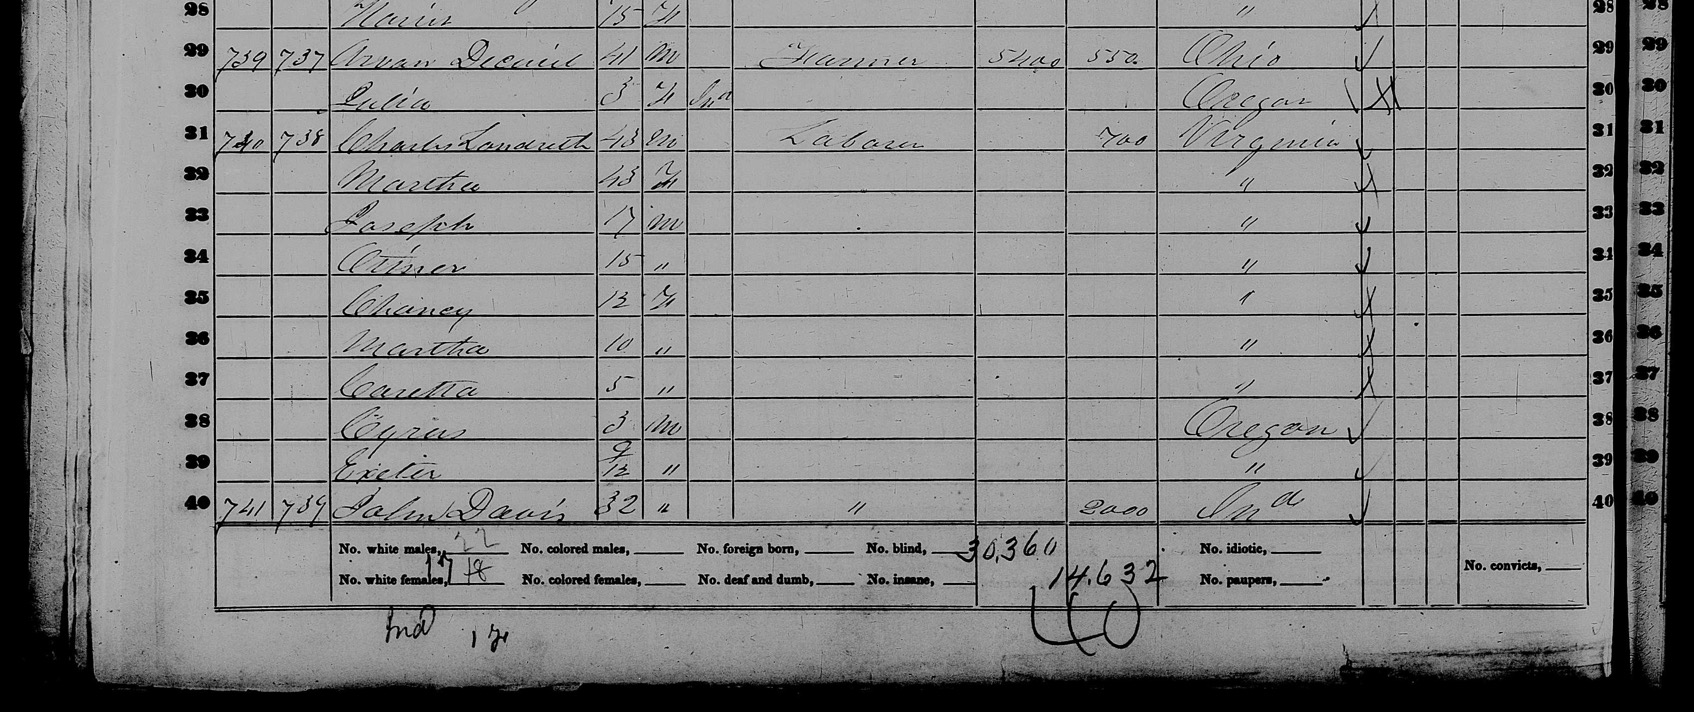 28 15 F " 28 28
29 739 737 41 M Farmer 5400 550 Ohio 29 29
30 Julia 3 F Ind Oregon 30 30
31 740 738 Charles Landreth 43 M Laborer 700 Virginia 31 31
32 Martha 43 F " 32 32
33 Joseph 17 M " 33 33
34 15 " " 34 34
35 Chancy 12 F " 35 35
36 Martha 10 " " 36 36
37 Caretta 5 " " 37 37
38 Cyrus 3 M Oregon 38 38
39 Exeter 9/12 " " 39 39
40 741 739 John Davis 32 " " 2000 Ind 40 40
No. white males, 22 No. colored males, No. foreign born, No. blind, 30,360 No. idiotic,
No. white females, 17 18 No. colored females, No. deaf and dumb, No. insane, 14,632 No. paupers, No. convicts,
Ind 1 F